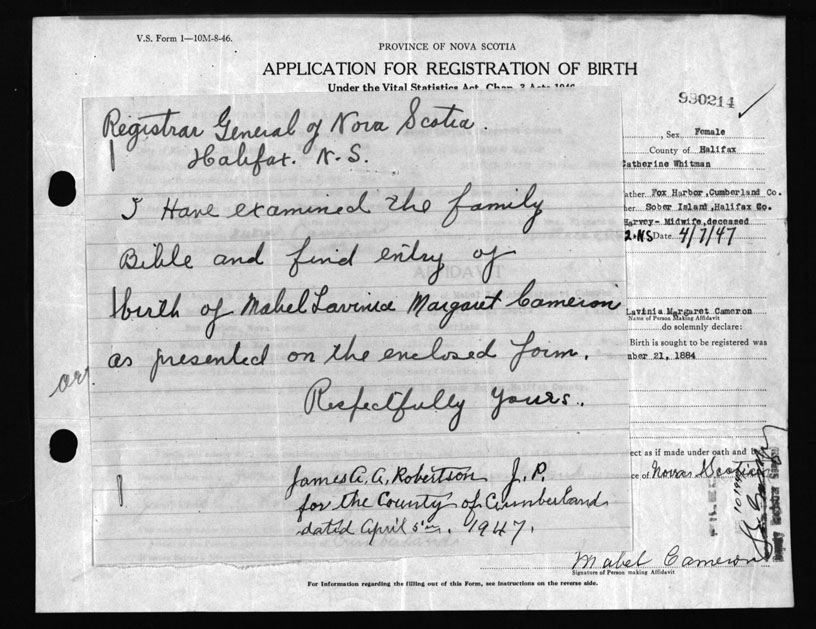 V.S. Form 1—10M-8-46.
PROVINCE OF NOVA SCOTIA
APPLICATION FOR REGISTRATION OF BIRTH
Under the Vital Statistics Act, Chap. 3 Acts 1946
990214
, Sex Female
County of Halifax
Catherine Whitman
ather Fox Harbor, Cumberland Co.
her Sober Island, Halifax Co.
Harvey- Midwife, deceased
2.NS Date 4/7/47
Registrar General of Nova Scotia.
Halifax. N.S.
I Have examined the family
Bible and find entry of
birth of Mabel Lavinia Margaret Cameron
as presented on the enclosed form.
Respectfully Yours.
James A. A. Robertson J.P.
for the County of Cumberland
dated April 5th. 1947.
Lavinia Margaret Cameron
Name of Person Making Affidavit
do solemnly declare:
Birth is sought to be registered was
ber 21, 1884
ect as if made under oath and
ce of Nova Scotia
Mabel Cameron
Signature of Person making Affidavit
For Information regarding the filling out of this Form, see instructions on the reverse side.